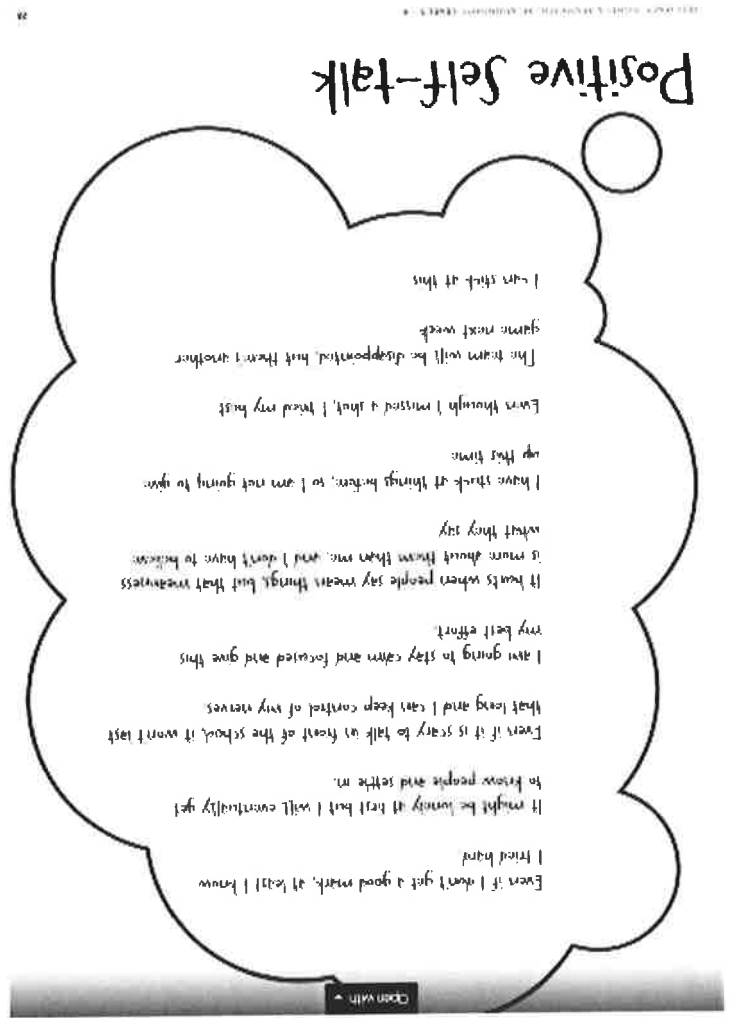 Open with
Even if I don't get a good mark, at least I know
I tried hard
It might be lonely at first but I will eventually get
to know people and settle in.
Even if it is scary to talk in front of the school, it won't last
that long and I can keep control of my nerves.
I am going to stay calm and focused and give this
my best effort.
It hurts when people say mean things, but that meanness
is more about them than me, and I don't have to believe
what they say
I have stuck at things before, so I am not going to give
up this time
Even though I missed a shot, I tried my best
The team will be disappointed, but there's another
game next week
I can stick at this
Positive Self-talk